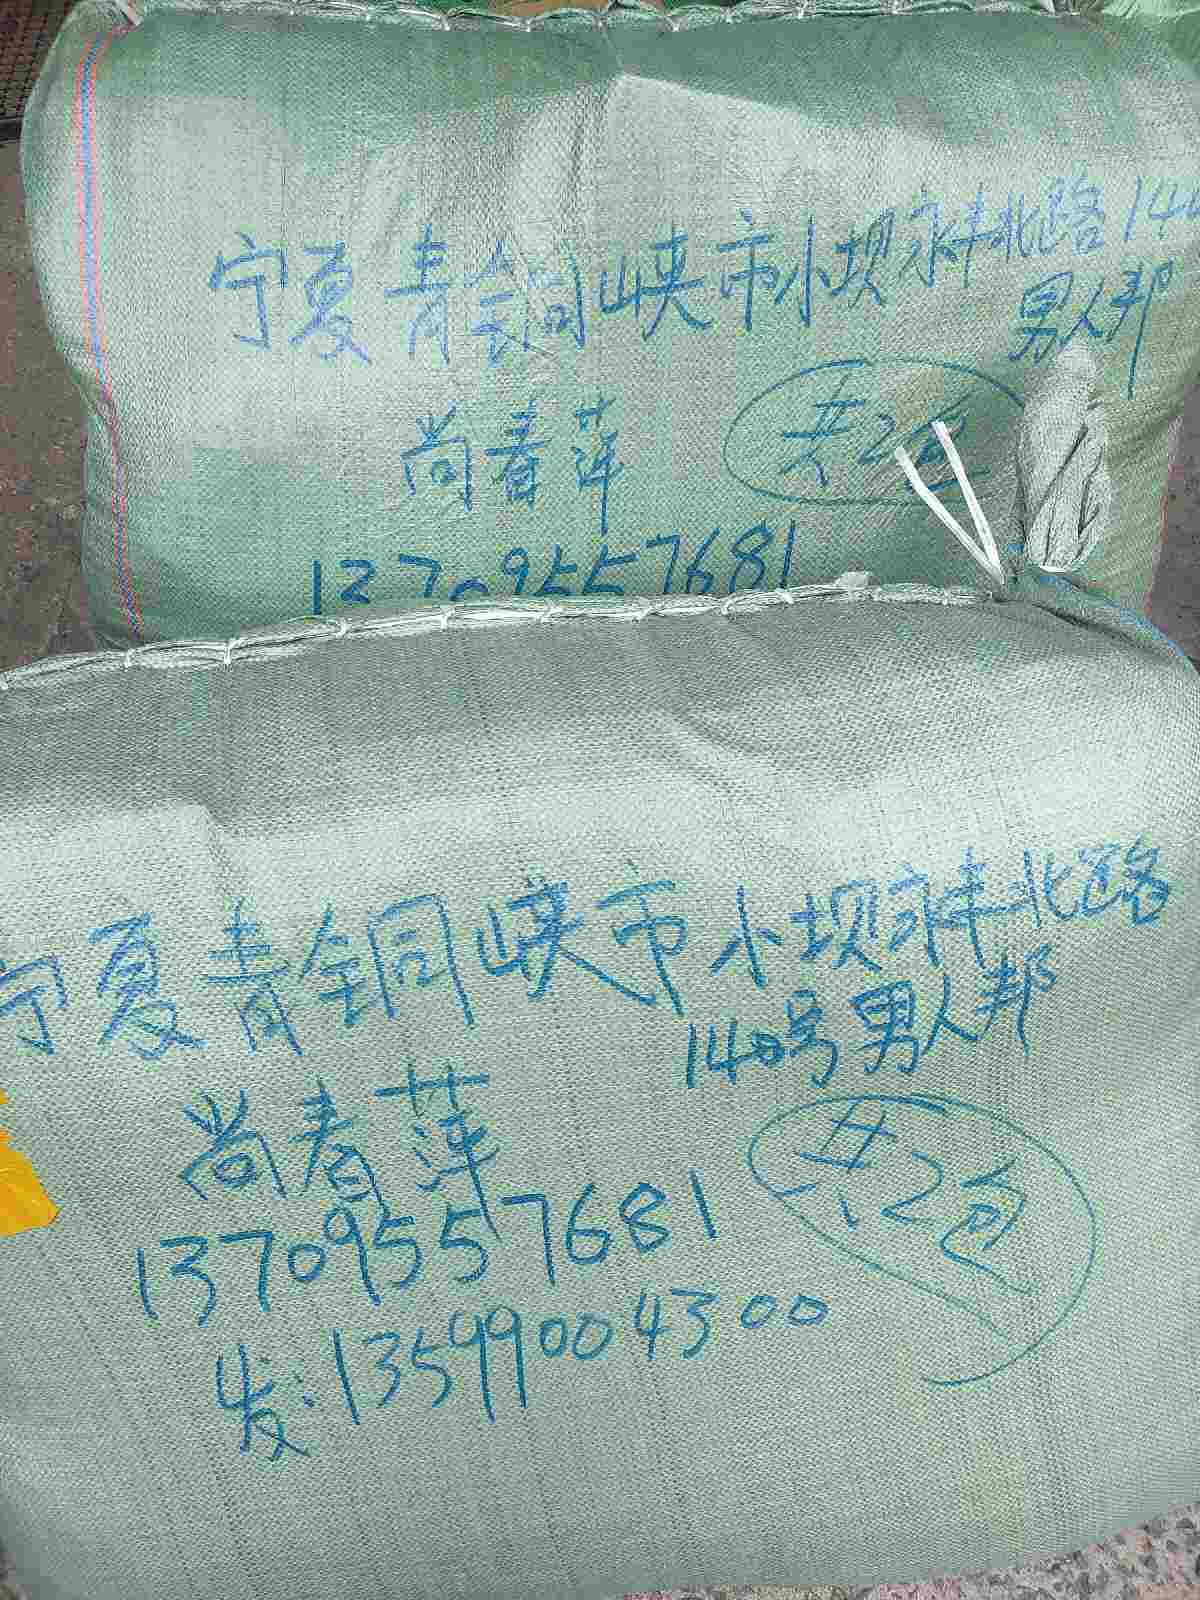 宁夏青铜峡市小坝永丰北路140
男人邦
尚春萍
共2包
13709557681
宁夏青铜峡市小坝永丰北路
140号男人邦
尚春萍
共2包
13709557681
发:13599004300